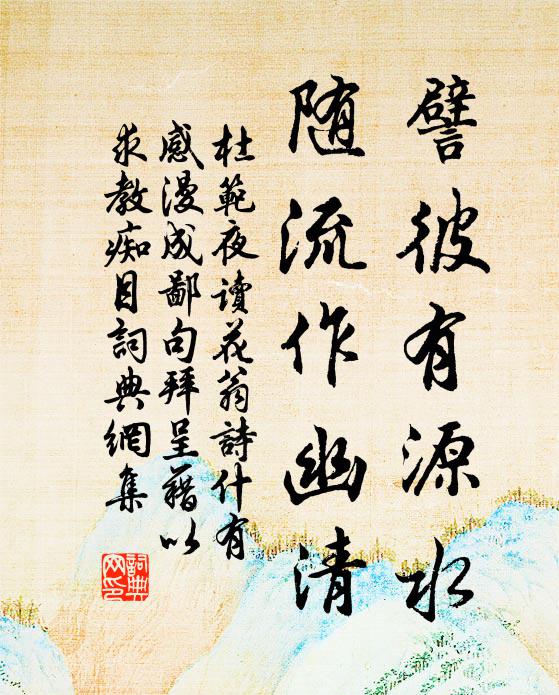 譬彼有源水
随流作幽清
杜範夜读花翁詩什有
感漫成鄙句拜呈藉以
求教痴目詞典網集
詞典網印